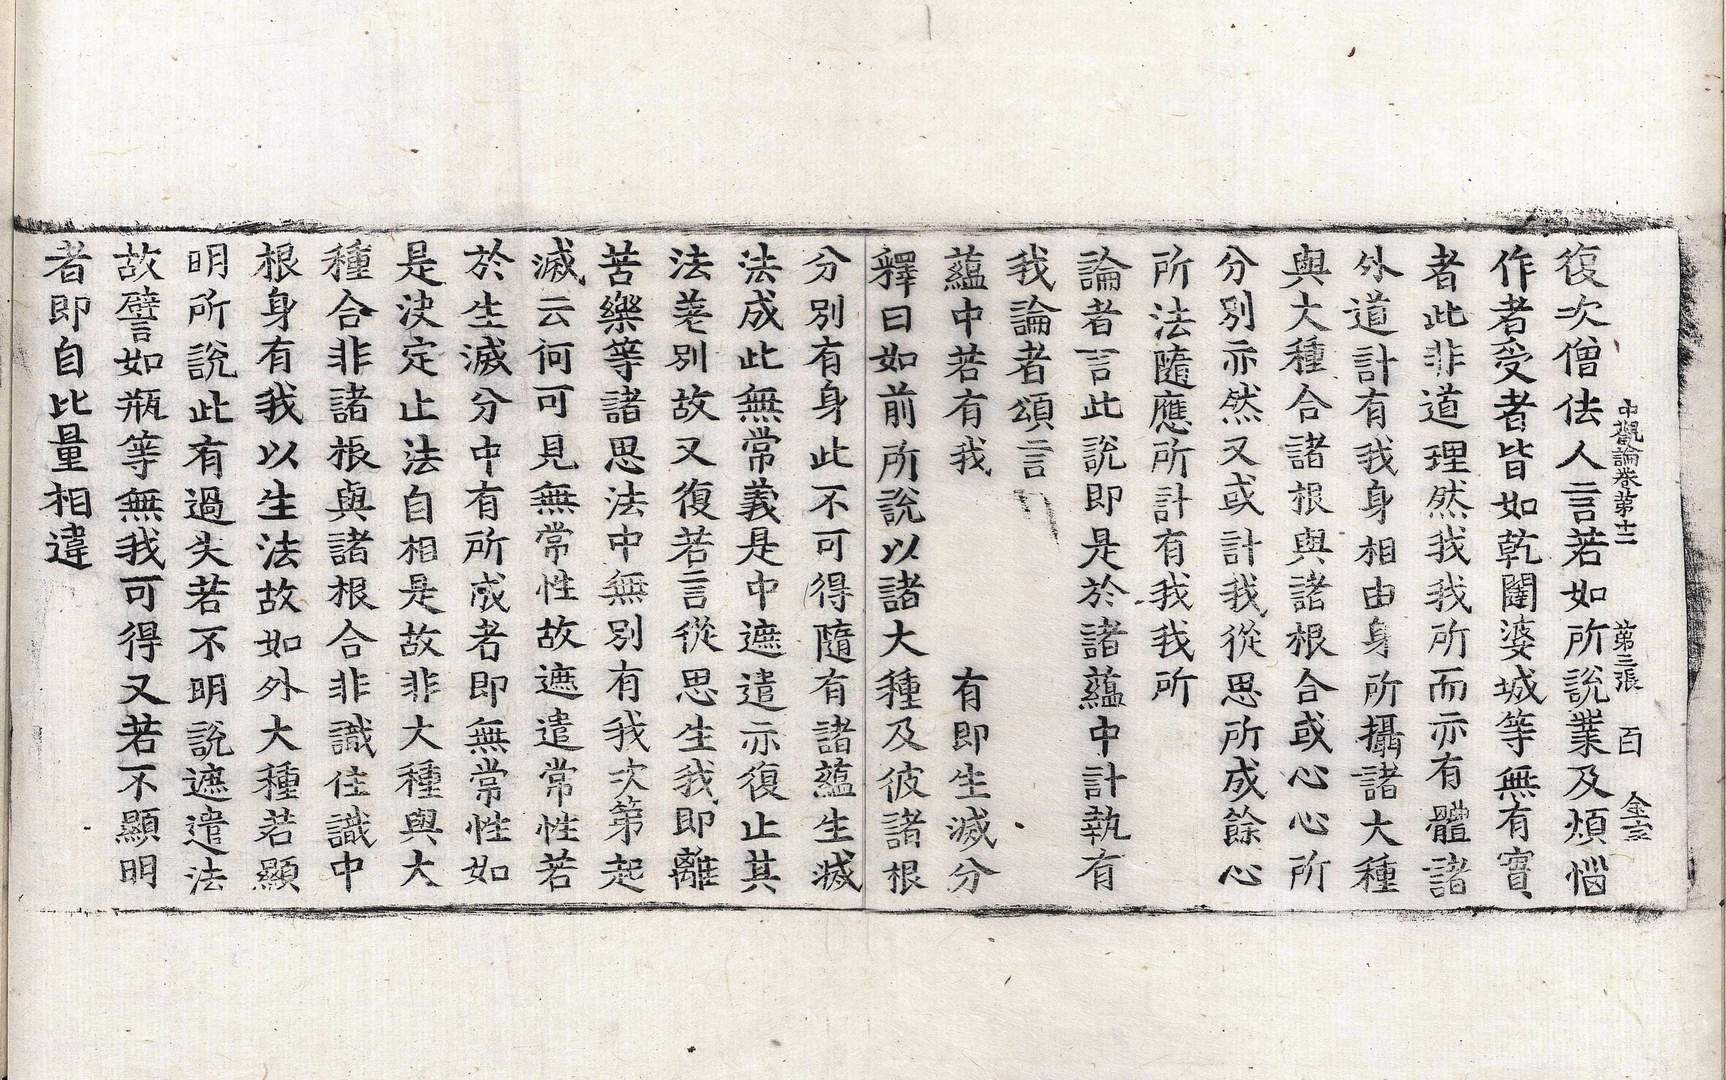 中觀論卷第十二　第三張　百　金玄
復次僧佉人言若如所說業及煩惱
作者受者皆如乾闥婆城等無有實
者此非道理然我我所而亦有體諸
外道計有我身相由身所攝諸大種
與大種合諸根與諸根合或心心所
分別亦然又或計我從思所成餘心
所法隨應所計有我我所
論者言此說即是於諸蘊中計執有
我論者頌言
蘊中若有我　有即生滅分
釋曰如前所說以諸大種及彼諸根
分別有身此不可得隨有諸蘊生滅
法成此無常義是中遮遣亦復止其
法差別故又復若言從思生我即離
苦樂等諸思法中無別有我次第起
滅云何可見無常性故遮遣常性若
於生滅分中有所成者即無常性如
是決定止法自相是故非大種與大
種合非諸根與諸根合非識住識中
根身有我以生法故如外大種若顯
明所說此有過失若不明說遮遣法
故譬如瓶等無我可得又若不顯明
者即自比量相違